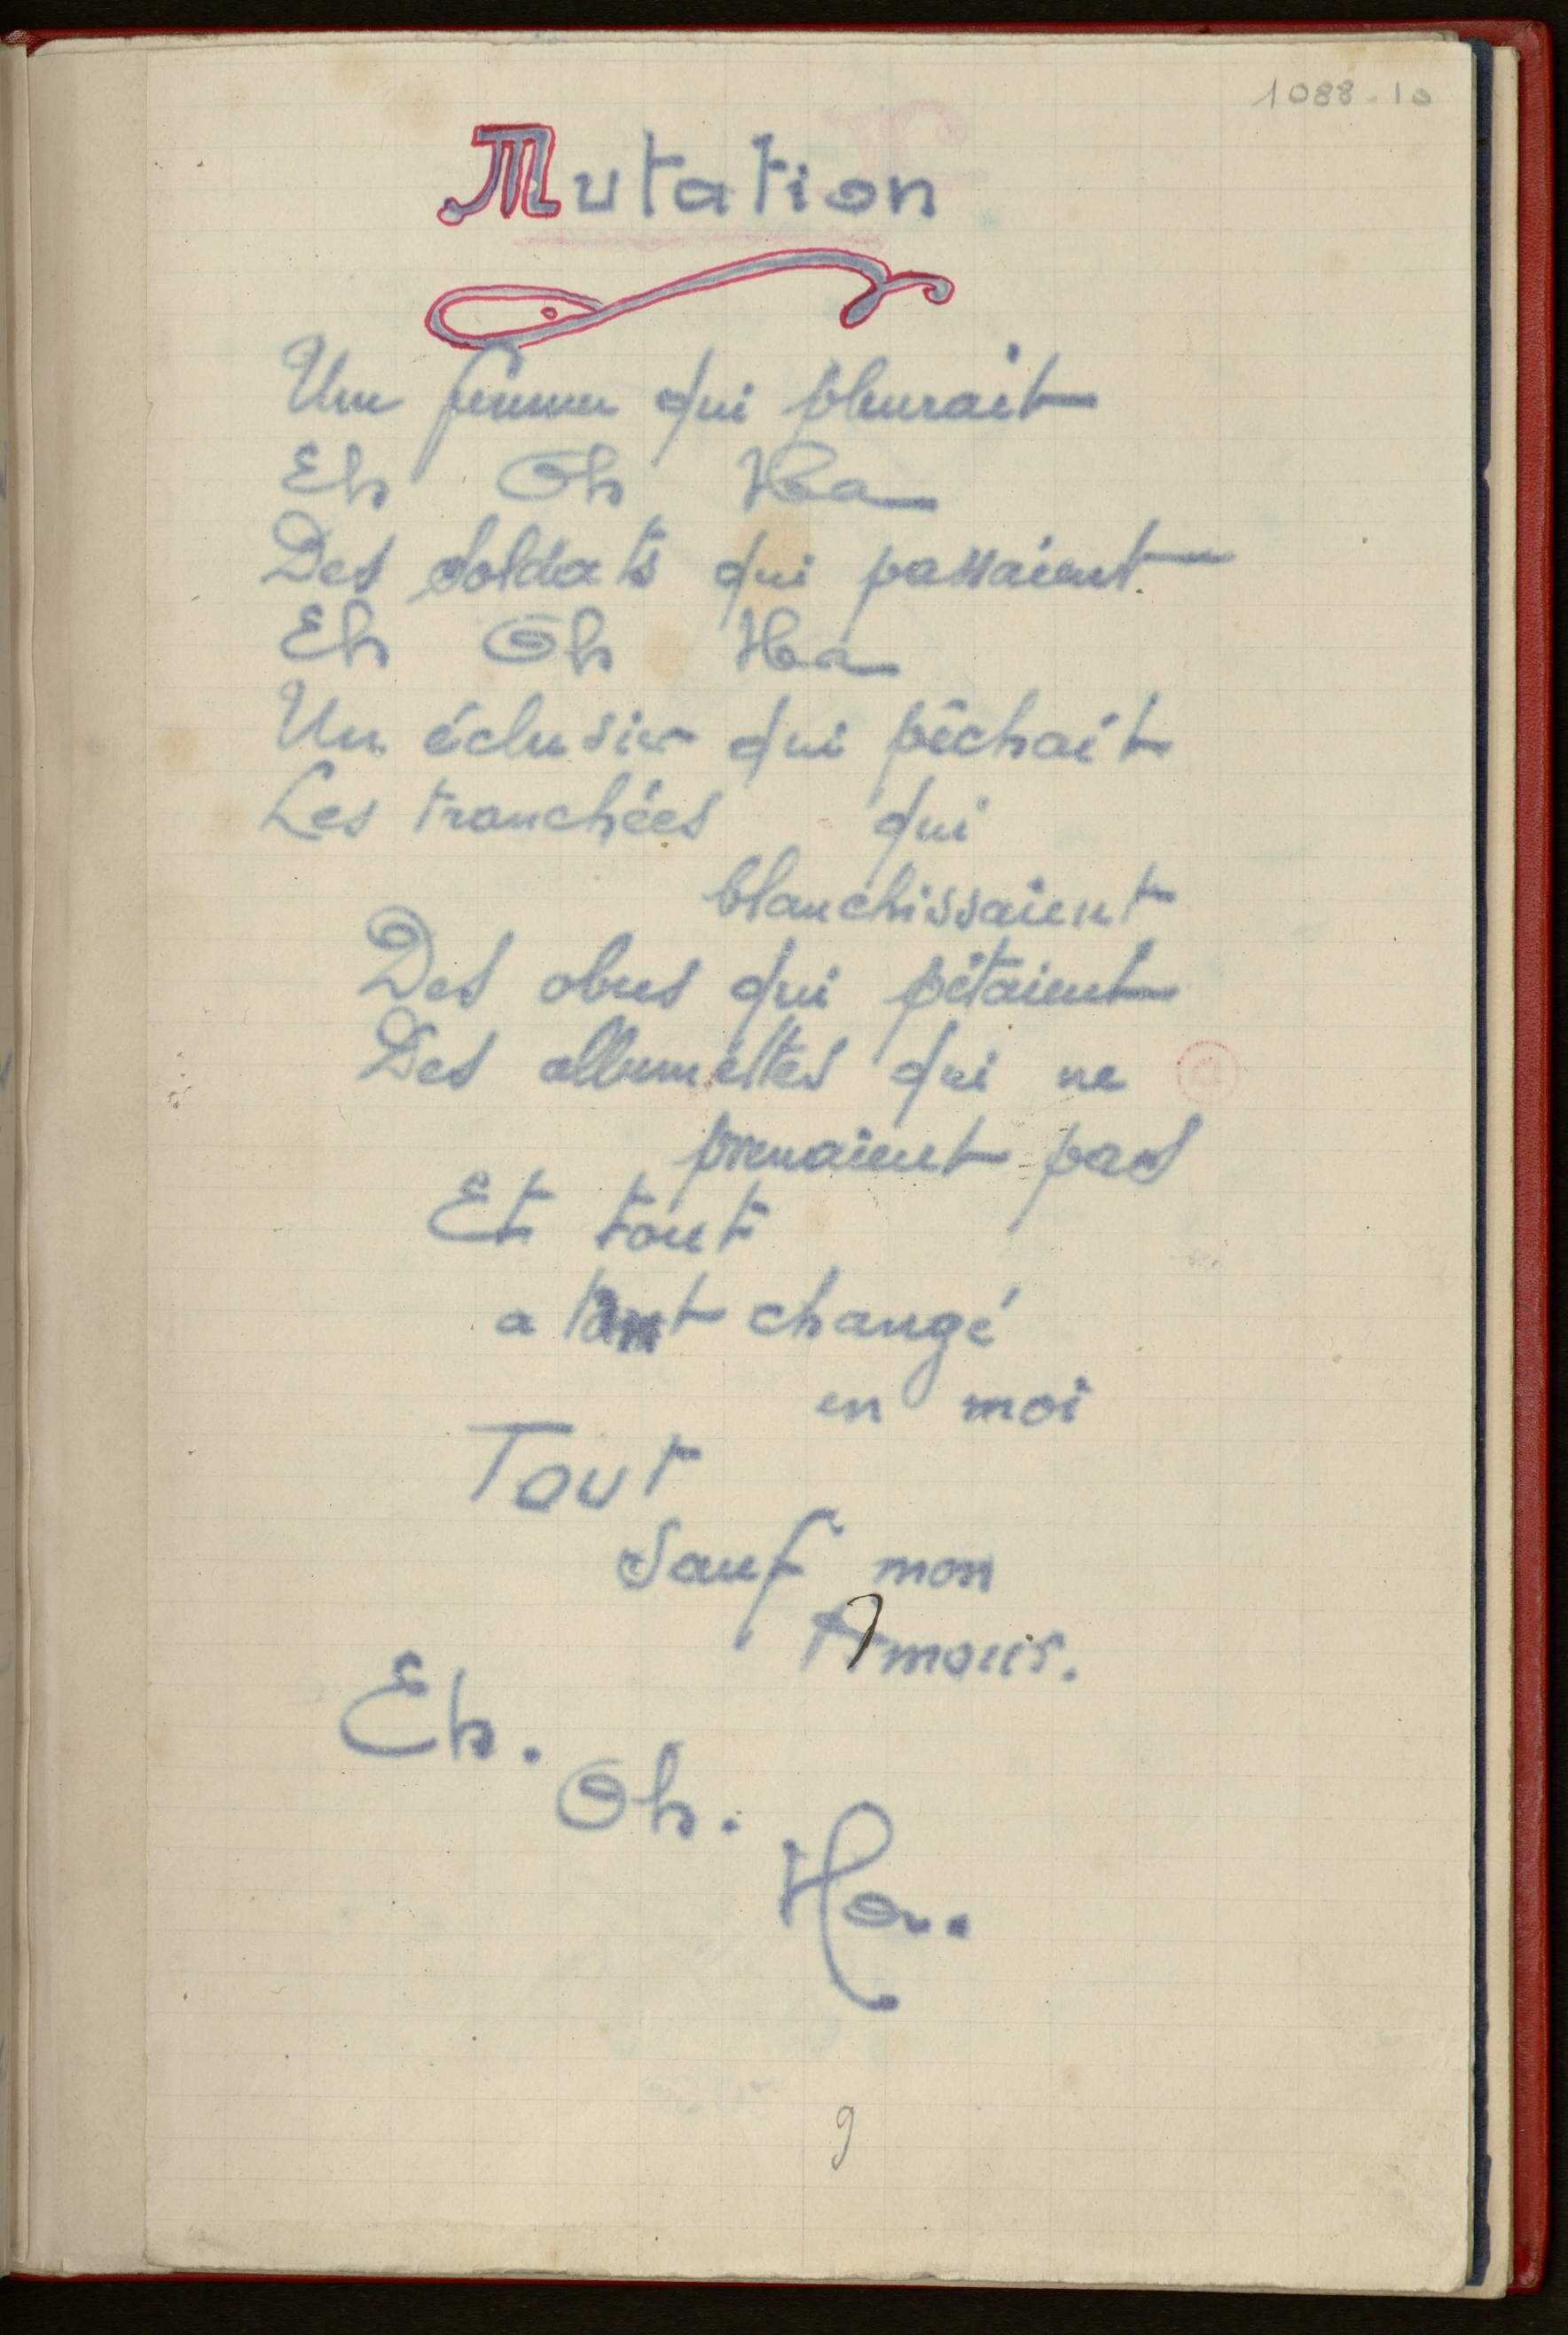 1088-10
Mutation
Une femme qui pleurait
Eh Oh Ha
Des soldats qui passaient
Eh Oh Ha
Un éclusier qui pêchait
Les tranchées qui
blanchissaient
Des obus qui pétaient
Des allumettes qui ne
prenaient pas
Et tout
a tant changé
en moi
Tout
Sauf mon
Amour.
Eh.
Oh.
Ha.
9